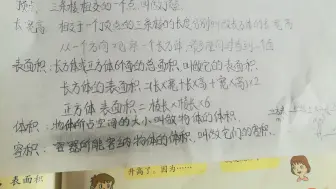 顶点：三条棱相交的一个点，叫做顶点。
长宽高：相交于一个顶点的三条棱的长度分别叫做长方体的长宽高
从一个方向
表面积：长方体或正方体6个面的总面积，叫做它的表面积。
长方体的表面积=(长×宽+长×高+宽×高)×2
正方体表面积=棱长×棱长×6
体积：物体所占空间的大小叫做物体的体积。
容积：容器所能容纳物体的体积，叫做它们的容积。
升高了，因为……
表面积